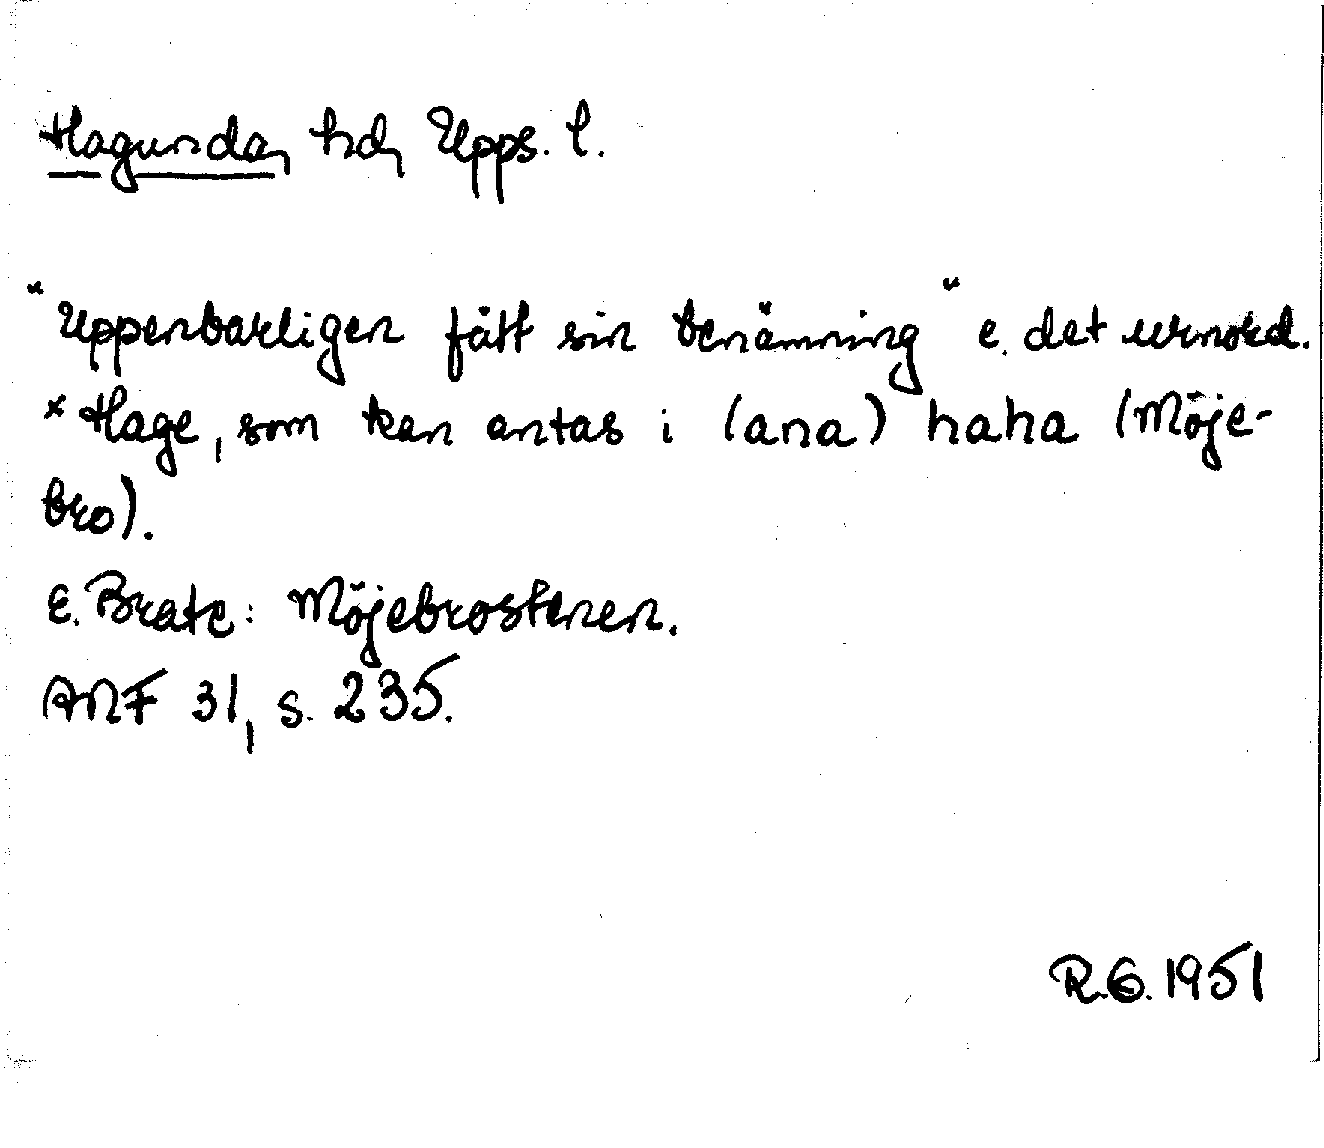 Hagunda, hd, Upps. l.
"Uppenbarligen fått sin benämning" e. det urnord.
×Hage, som kan antas i (ana) haha (Möje-
bro).
E. Brate: Möjebrostenen.
ANF 31, s. 235.
R.G. 1951